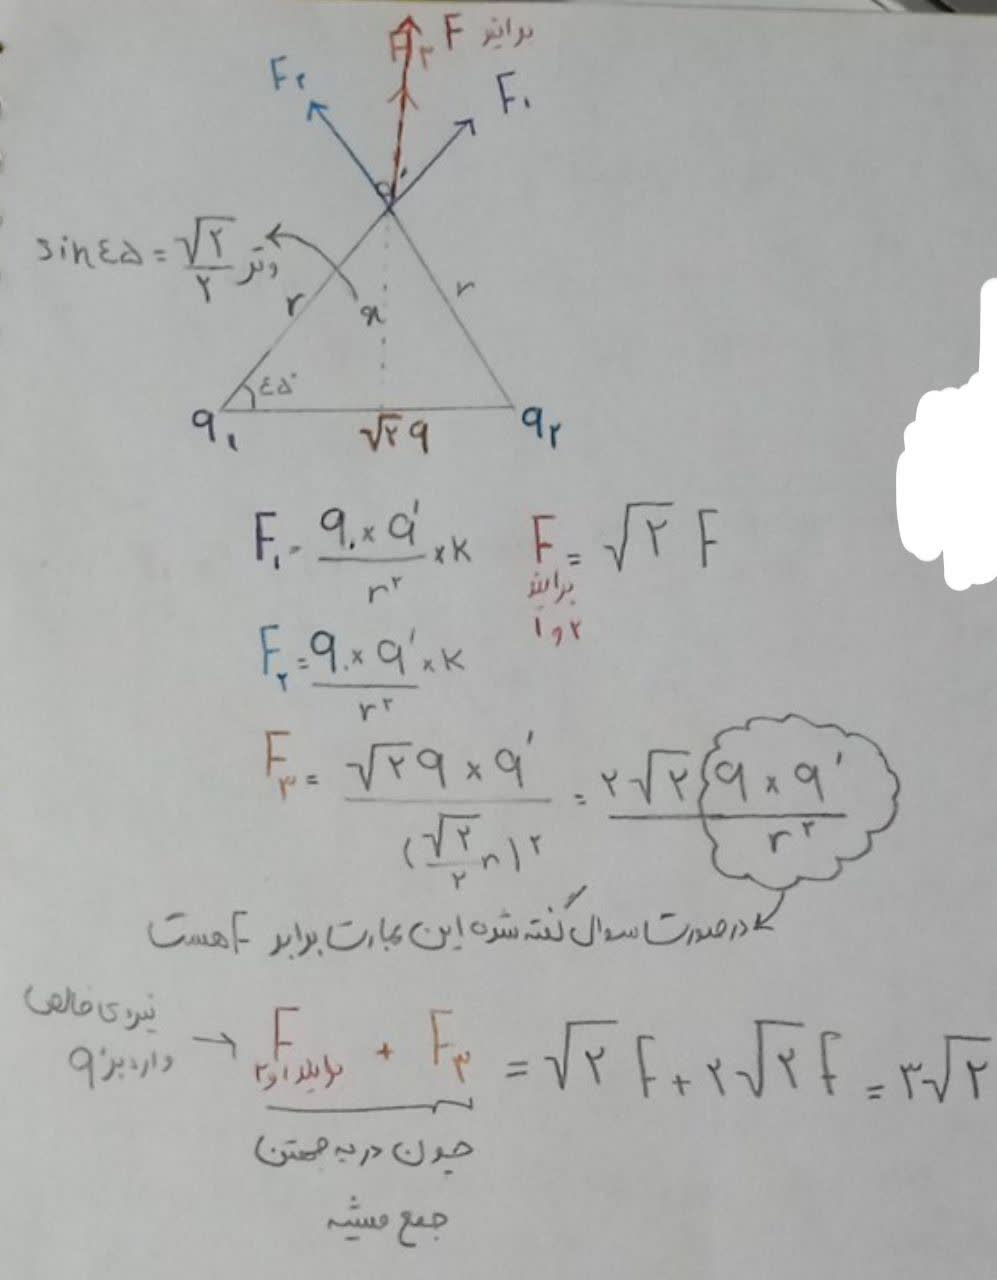 F₃ F برایند
F₂ F₁
q'
sin۴۵ = √۲/۲ وتر
r x r
۴۵°
q₁ √۲q q₂
F₁ = q × q' / r² × k F برایند ۱ و ۲ = √۲ F
F₂ = q × q' / r² × k
F₃ = √۲q × q' / (√۲/۲ r)² = ۲√۲ q × q' / r²
در صورت سوال گفته شده این عبارت برابر F هست
نیروی خالص وارد بر q' → F برایند ۱ و ۲ + F₃ = √۲ F + ۲√۲ F = ۳√۲
چون در یه جهتن
جمع میشه